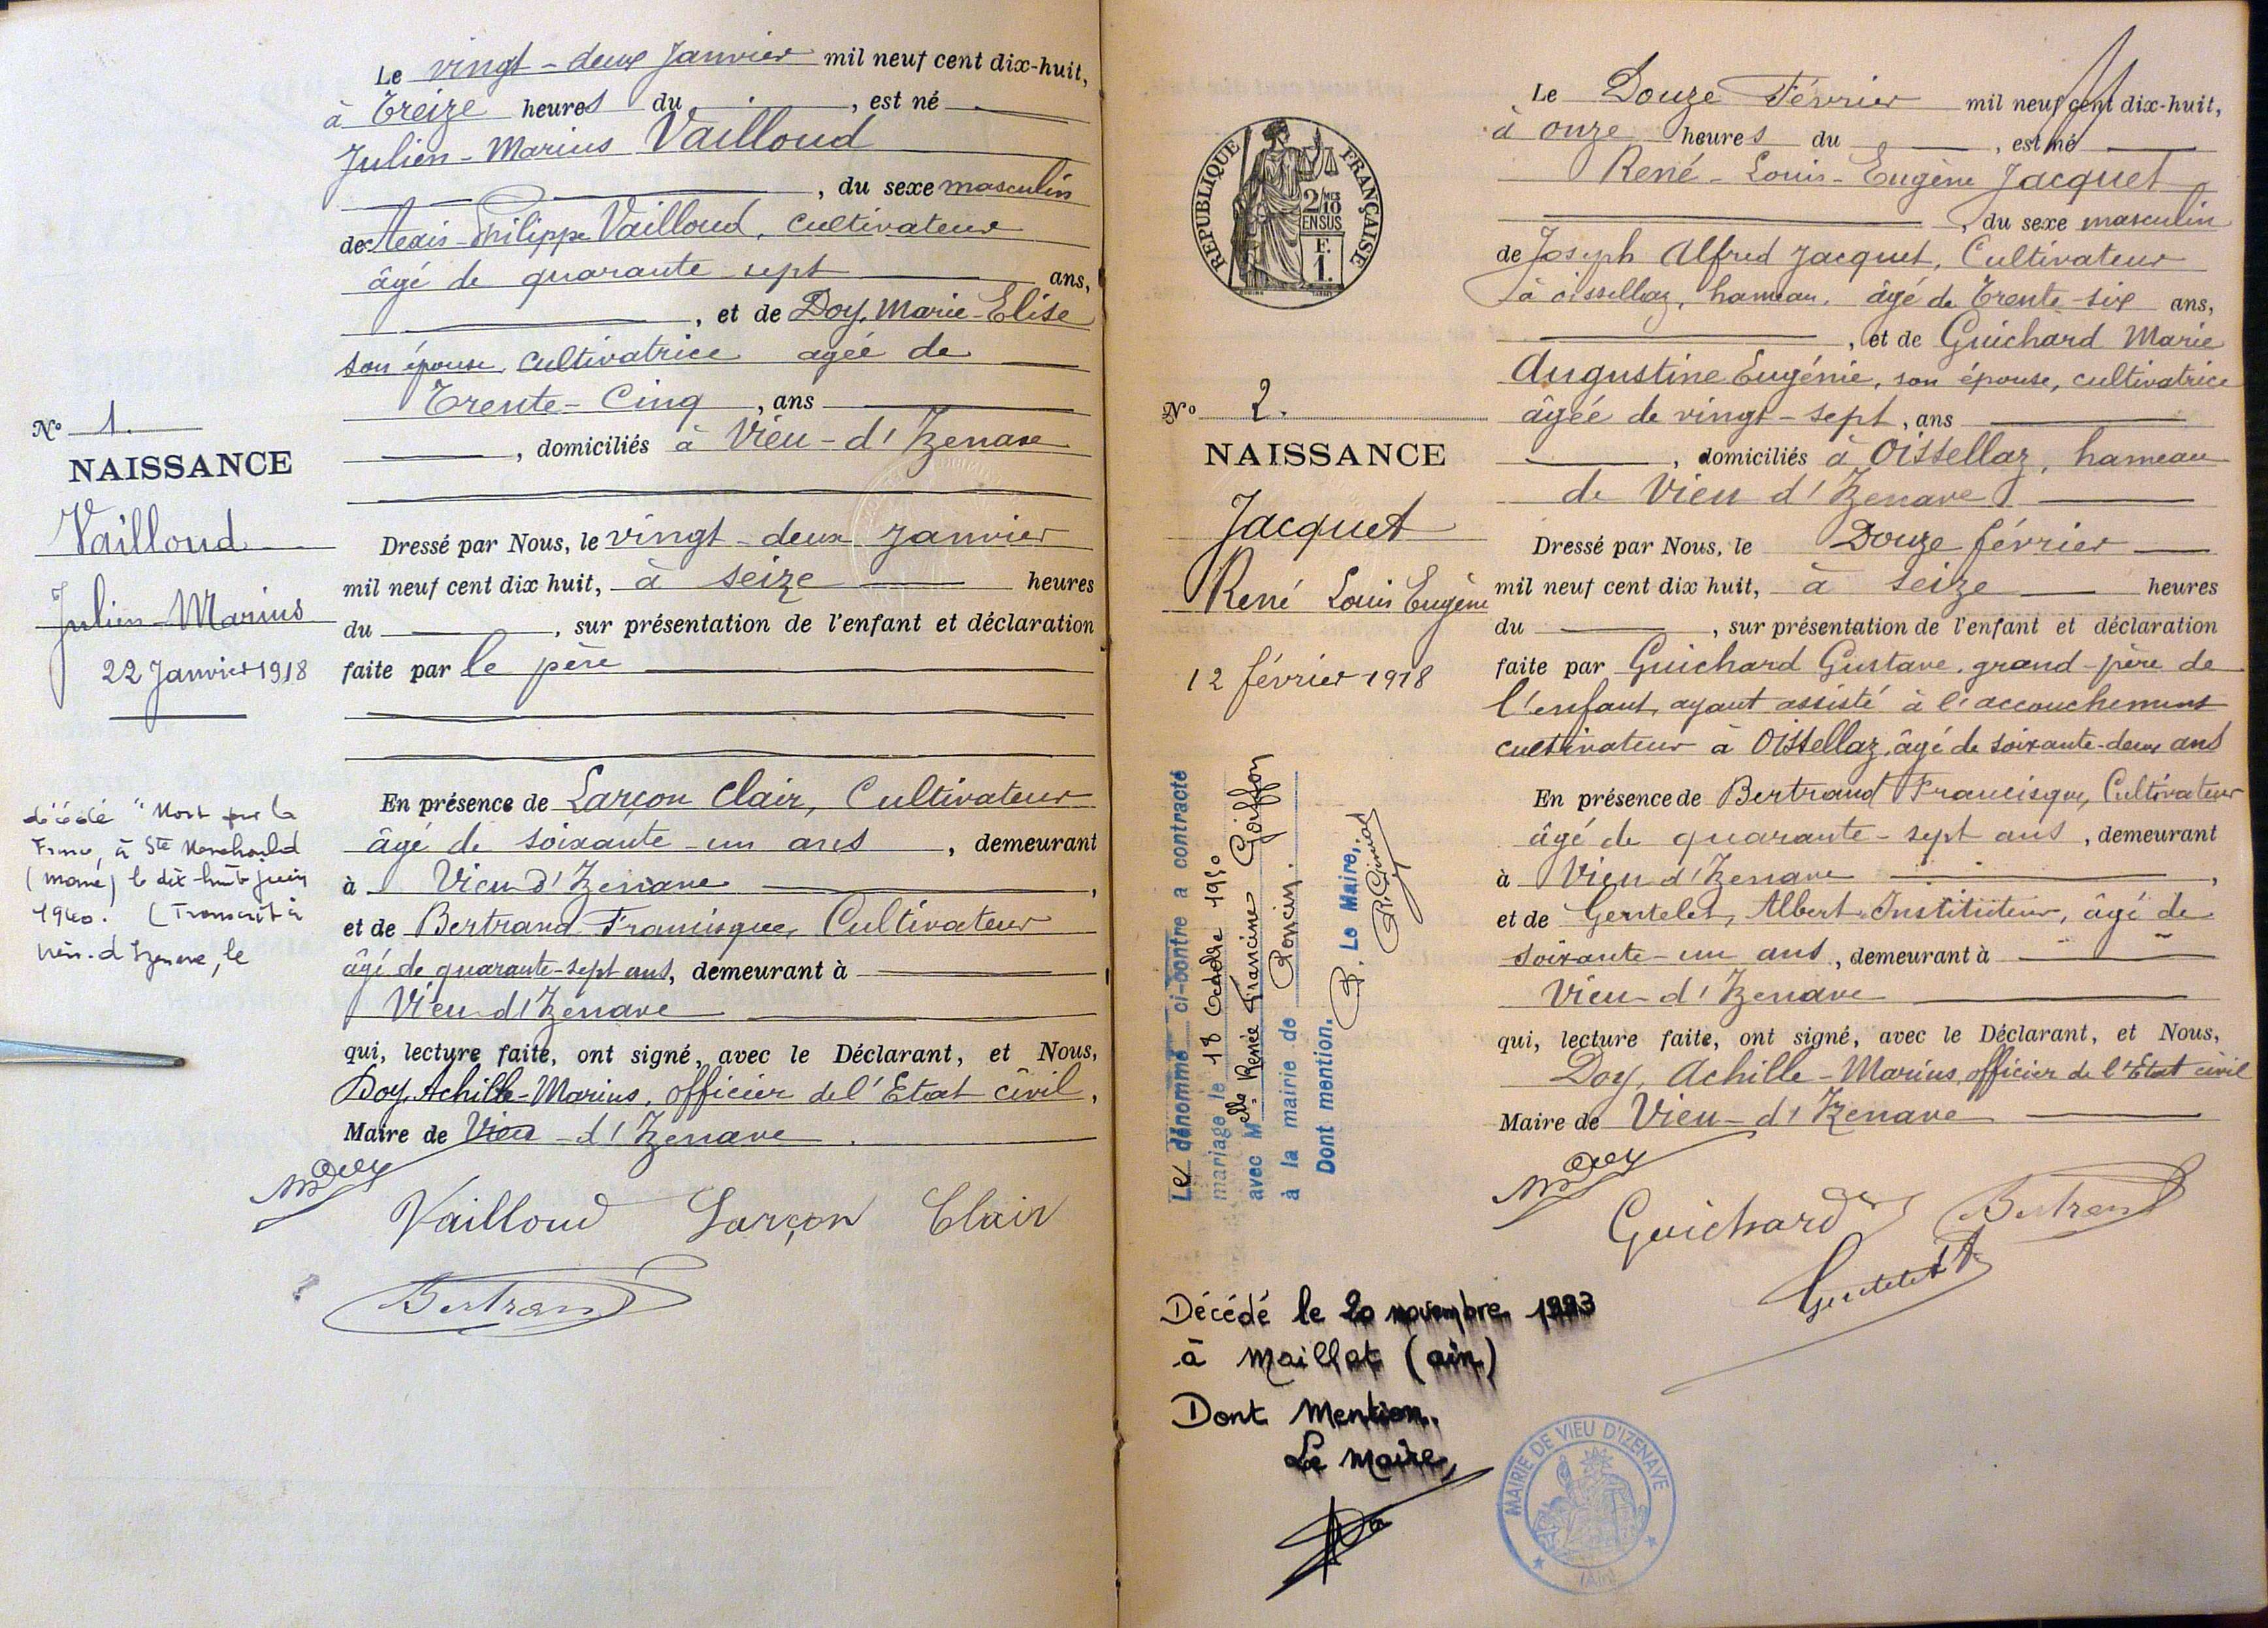 Le vingt-deux Janvier mil neuf cent dix-huit,
à Treize heures du , est né
Julien-Marius Vailloud
, du sexe masculin
de Alexis-Philippe Vailloud, cultivateur
âgé de quarante sept ans,
, et de Doy, Marie-Elise
son épouse, cultivatrice agée de
Trente-Cinq , ans
, domiciliés à Vieu-d'Izenave
Dressé par Nous, le vingt-deux Janvier
mil neuf cent dix huit, à seize heures
du , sur présentation de l'enfant et déclaration
faite par le père
En présence de Larçon Clair, Cultivateur
âgé de soixante-un ans , demeurant
à Vieu d'Izenave ,
et de Bertrand Francisque, Cultivateur
âgé de quarante-sept ans, demeurant à
Vieu d'Izenave
qui, lecture faite, ont signé, avec le Déclarant, et Nous,
Doy, Achille-Marius, officier de l'Etat civil,
Maire de Vieu-d'Izenave.
Doy
Vailloud Larçon Clair
Bertrand
No 1.
NAISSANCE
Vailloud
Julien-Marius
22 Janvier 1918
décédé "Mort pour la
France, à Ste Menehould
(Marne) le dix-huit juin
1940. (Transcrit à
Vieu-d'Izenave, le
REPUBLIQUE FRANÇAISE
2/10
EN SUS
F.
1.
No 2.
NAISSANCE
Jacquet
René Louis Eugène
12 février 1918
Le dénommé ci-contre a contracté
mariage le 18 Octobre 1950
avec Melle Renée Francine Goiffon
à la mairie de Poncin.
Dont mention.
P. Le Maire,
Décédé le 20 novembre 1993
à Maillat (ain)
Dont Mention.
Le Maire,
Le Douze Février mil neuf cent dix-huit,
à onze heures du , est né
René-Louis-Eugène Jacquet
, du sexe masculin
de Joseph Alfred Jacquet, Cultivateur
à oissellaz, hameau, âgé de Trente-six ans,
, et de Guichard Marie
Augustine Eugénie, son épouse, cultivatrice
âgée de vingt-sept, ans
, domiciliés à Oissellaz, hameau
de Vieu d'Izenave
Dressé par Nous, le Douze février
mil neuf cent dix huit, à seize heures
du , sur présentation de l'enfant et déclaration
faite par Guichard Gustave, grand-père de
l'enfant, ayant assisté à l'accouchement
cultivateur à Oissellaz, âgé de soixante-deux ans
En présence de Bertrand Francisque, Cultivateur
âgé de quarante-sept ans , demeurant
à Vieu d'Izenave ,
et de Gentelet, Albert, Instituteur, âgé de
soixante-un ans , demeurant à
Vieu-d'Izenave
qui, lecture faite, ont signé, avec le Déclarant, et Nous,
Doy, Achille-Marius, officier de l'Etat civil
Maire de Vieu-d'Izenave
Doy
Guichard Bertrand
Gentelet A
MAIRIE DE VIEU D'IZENAVE
(Ain)